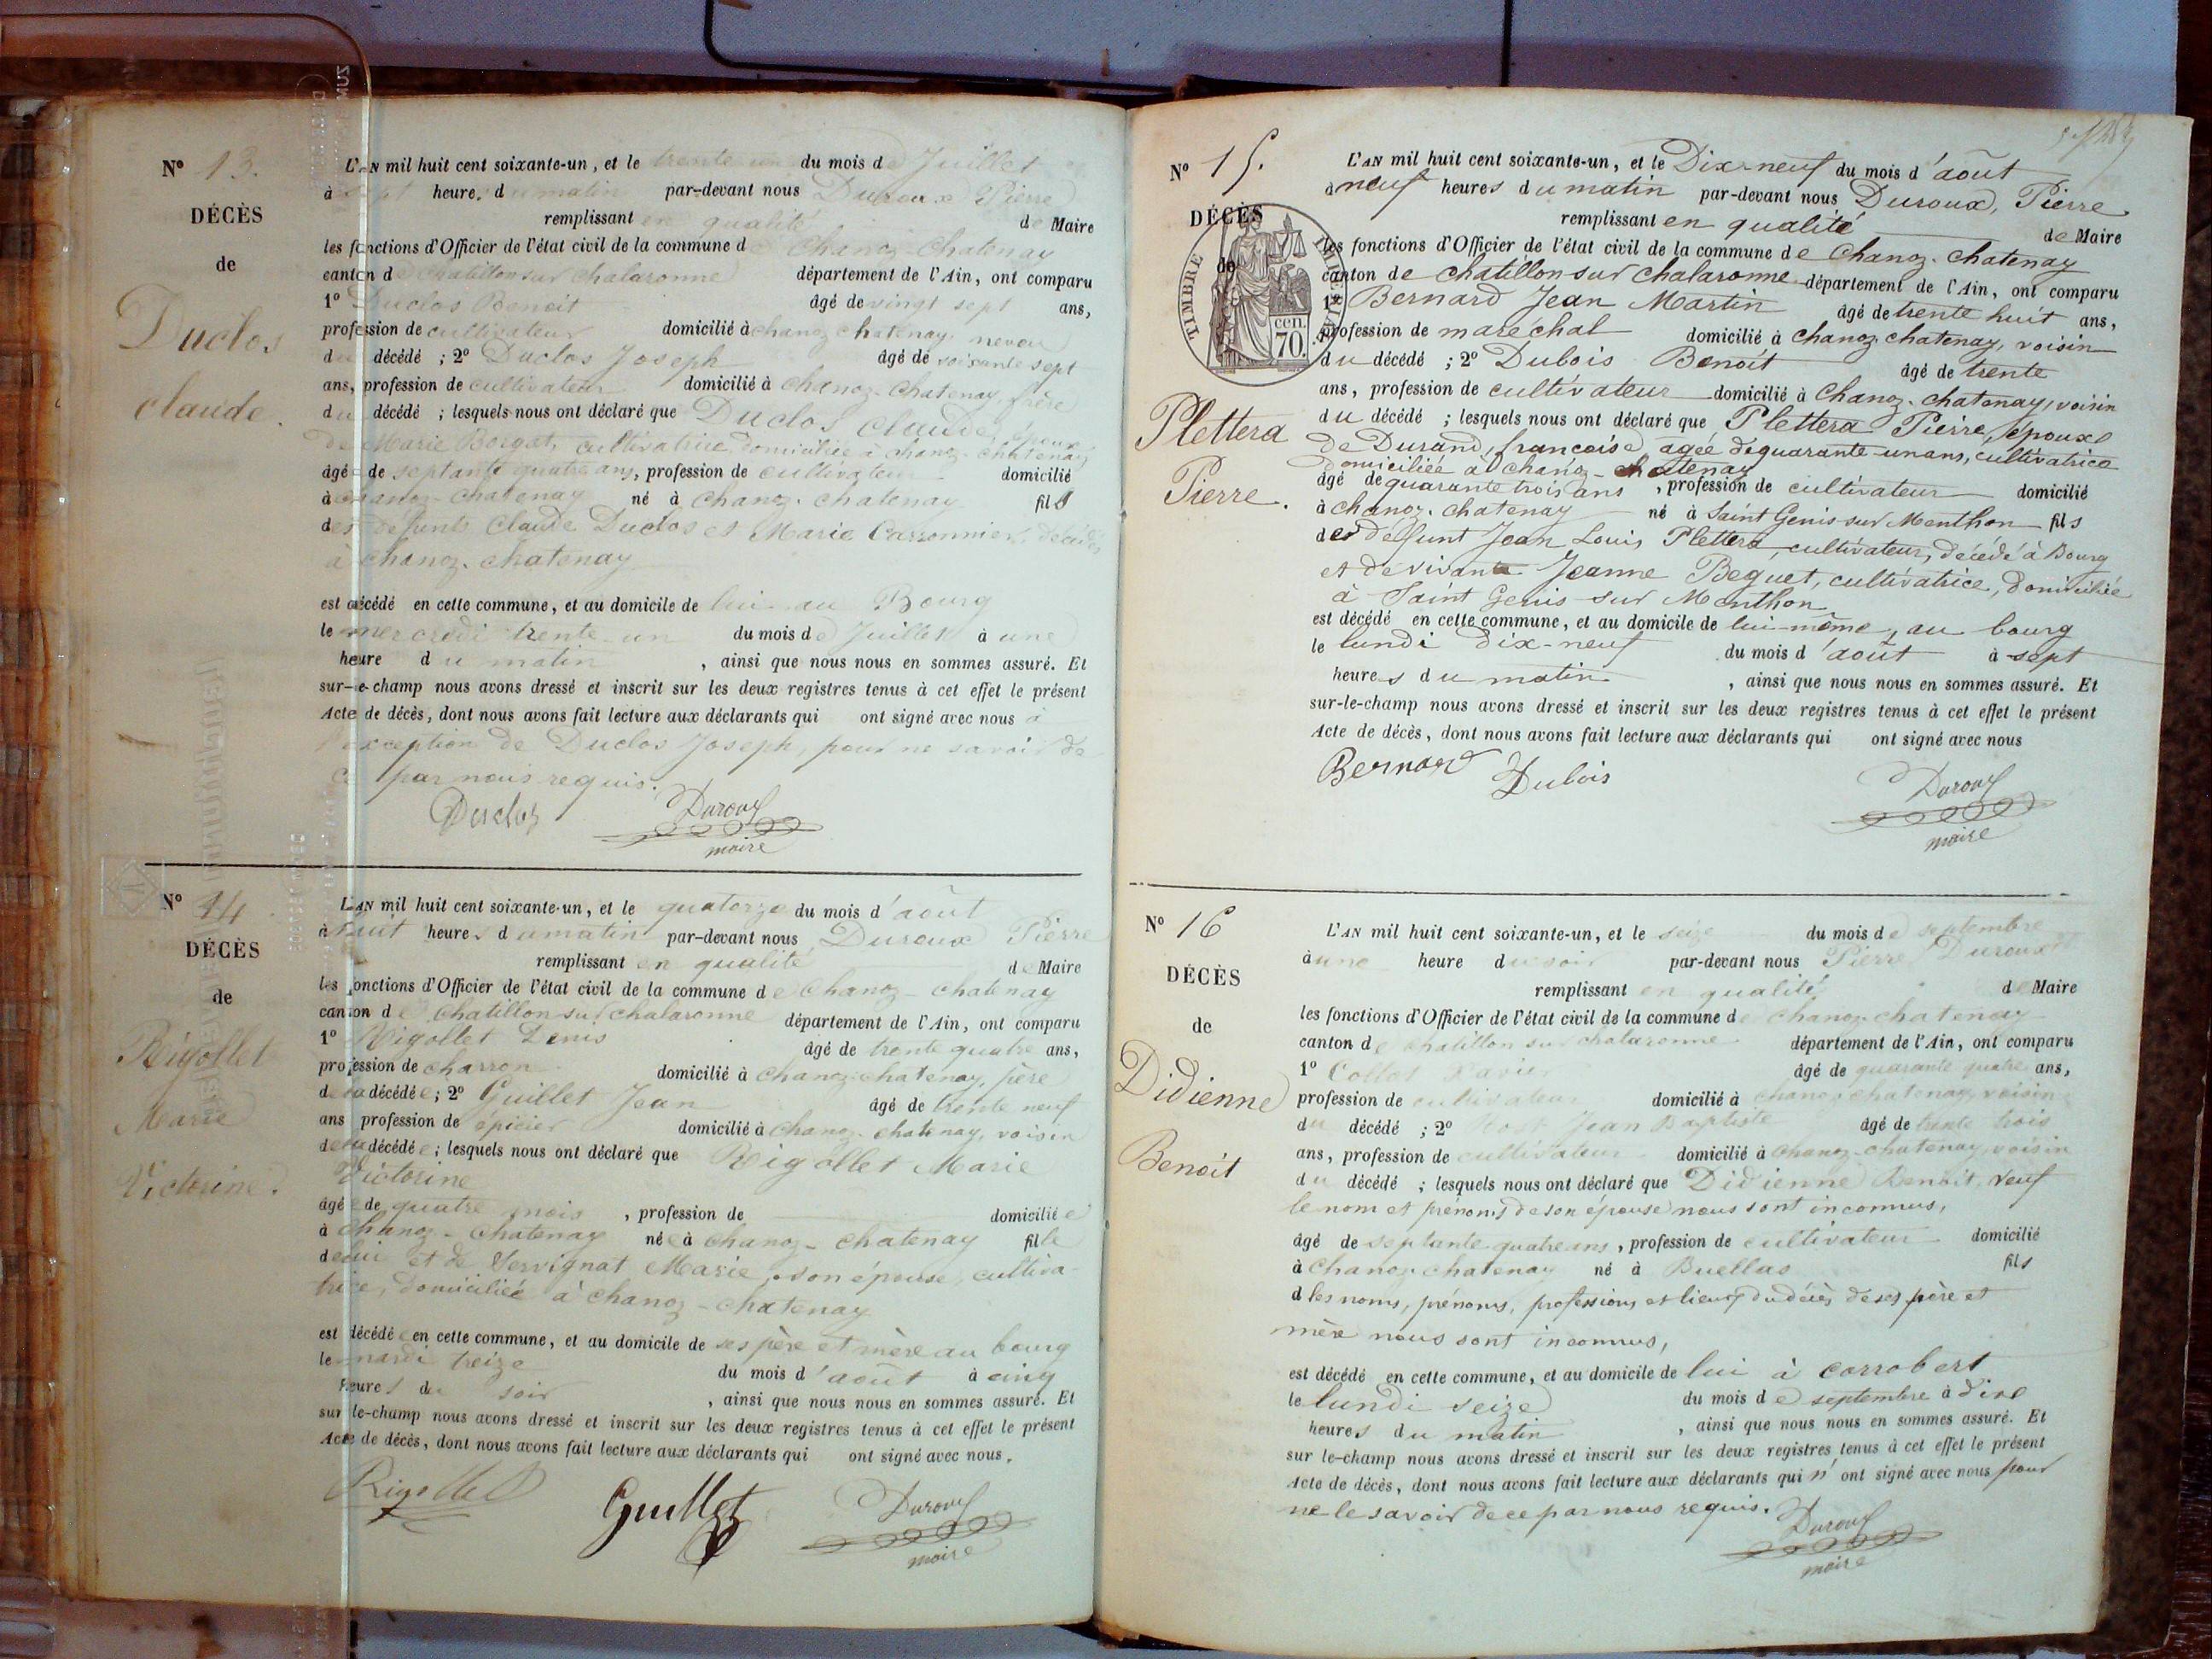 N° 13.
DÉCÈS
de
Duclos
claude.
L'AN mil huit cent soixante-un, et le trente un du mois de Juillet
à sept heures du matin par-devant nous Duroux Pierre
remplissant en qualité de Maire
les fonctions d'Officier de l'état civil de la commune de Chanoz-Chatenay
canton de Chatillon sur Chalaronne département de l'Ain, ont comparu
1° Duclos Benoit âgé de vingt sept ans,
profession de cultivateur domicilié à chanoz chatenay, neveu
du décédé ; 2° Duclos Joseph âgé de soixante sept
ans, profession de cultivateur domicilié à chanoz-Chatenay, frère
du décédé ; lesquels nous ont déclaré que Duclos Claude, époux
de Marie Borgat, cultivatrice, domiciliée à chanoz-chatenay
âgé de septante quatre ans, profession de cultivateur domicilié
à chanoz-chatenay né à chanoz-chatenay fils
des défunts Claude Duclos et Marie Carronnier, décédés
à chanoz-chatenay
est décédé en cette commune, et au domicile de lui au Bourg
le mercredi trente-un du mois de Juillet à une
heure du matin , ainsi que nous nous en sommes assuré. Et
sur-le-champ nous avons dressé et inscrit sur les deux registres tenus à cet effet le présent
Acte de décès, dont nous avons fait lecture aux déclarants qui ont signé avec nous à
l'exception de Duclos Joseph, pour ne savoir de
ce par nous requis.
Duclos Duroux
maire
N° 14
DÉCÈS
de
Rigollet
Marie
Victorine.
L'AN mil huit cent soixante-un, et le quatorze du mois d'août
à huit heures du matin par-devant nous Duroux Pierre
remplissant en qualité de Maire
les fonctions d'Officier de l'état civil de la commune de Chanoz-chatenay
canton de chatillon sur chalaronne département de l'Ain, ont comparu
1° Rigollet Denis âgé de trente quatre ans,
profession de charron domicilié à chanoz-chatenay, père
de la décédée ; 2° Guillet Jean âgé de trente neuf
ans profession de épicier domicilié à chanoz-chatenay, voisin
de la décédée ; lesquels nous ont déclaré que Rigollet Marie
Victorine
âgée de quatre mois , profession de domiciliée
à chanoz-Chatenay née à chanoz-chatenay fille
de lui et de Servignat Marie, son épouse, cultiva-
trice, domiciliée à chanoz-chatenay
est décédée en cette commune, et au domicile de ses père et mère au bourg
le mardi treize du mois d'août à cinq
heures du soir , ainsi que nous nous en sommes assuré. Et
sur le-champ nous avons dressé et inscrit sur les deux registres tenus à cet effet le présent
Acte de décès, dont nous avons fait lecture aux déclarants qui ont signé avec nous.
Rigollet Guillet Duroux
maire
N° 15.
DÉCÈS
de
TIMBRE IMPERIAL
70. cen.
Plettera
Pierre.
L'AN mil huit cent soixante-un, et le Dix-neuf du mois d'août
à neuf heures du matin par-devant nous Duroux, Pierre
remplissant en qualité de Maire
les fonctions d'Officier de l'état civil de la commune de Chanoz-chatenay
canton de chatillon sur chalaronne département de l'Ain, ont comparu
1° Bernard Jean Martin âgé de trente huit ans,
profession de maréchal domicilié à chanoz chatenay, voisin
du décédé ; 2° Dubois Benoit âgé de trente
ans, profession de cultivateur domicilié à Chanoz-chatenay, voisin
du décédé ; lesquels nous ont déclaré que Plettera Pierre, époux
de Durand, françoise agée de quarante-un ans, cultivatrice
domiciliée à chanoz-chatenay
âgé de quarante trois ans , profession de cultivateur domicilié
à chanoz-chatenay né à Saint Genis sur Menthon fils
des défunt Jean Louis Plettera, cultivateur, décédé à Bourg
et de vivante Jeanne Beguet, cultivatrice, domiciliée
à Saint Genis sur Menthon
est décédé en cette commune, et au domicile de lui-même, au bourg
le lundi dix-neuf du mois d'août à sept
heures du matin , ainsi que nous nous en sommes assuré. Et
sur-le-champ nous avons dressé et inscrit sur les deux registres tenus à cet effet le présent
Acte de décès, dont nous avons fait lecture aux déclarants qui ont signé avec nous
Bernard Dubois Duroux
maire
N° 16
DÉCÈS
de
Didienne
Benoit
L'AN mil huit cent soixante-un, et le seize du mois de septembre
à une heure du soir par-devant nous Pierre Duroux
remplissant en qualité de Maire
les fonctions d'Officier de l'état civil de la commune de chanoz-chatenay
canton de chatillon sur chalaronne département de l'Ain, ont comparu
1° Collet âgé de quarante quatre ans,
profession de cultivateur domicilié à chanoz chatenay, voisin
du décédé ; 2° Jean Baptiste âgé de trente trois
ans, profession de cultivateur domicilié à chanoz-chatenay, voisin
du décédé ; lesquels nous ont déclaré que Didienne Benoit, veuf
le nom et prénoms de son épouse nous sont inconnus,
âgé de septante quatre ans , profession de cultivateur domicilié
à Chanoz-chatenay né à Buellas fils
d les noms, prénoms, professions et lieux du décès de ses père et
mère nous sont inconnus,
est décédé en cette commune, et au domicile de lui à corrobert
le lundi seize du mois de septembre à dix
heures du matin , ainsi que nous nous en sommes assuré. Et
sur le-champ nous avons dressé et inscrit sur les deux registres tenus à cet effet le présent
Acte de décès, dont nous avons fait lecture aux déclarants qui n'ont signé avec nous pour
ne le savoir de ce par nous requis.
Duroux
maire